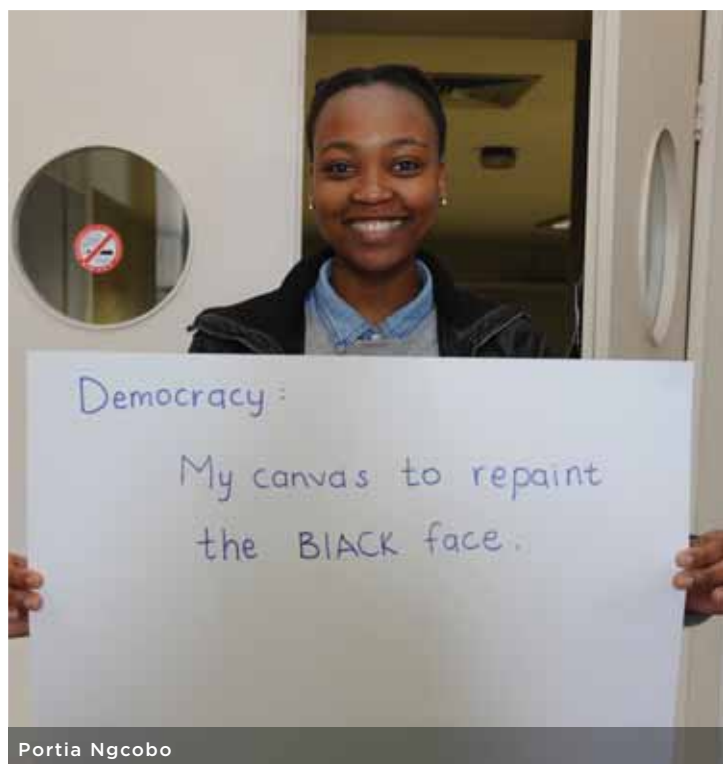 Democracy:
My canvas to repaint
the BlACK face.
Portia Ngcobo